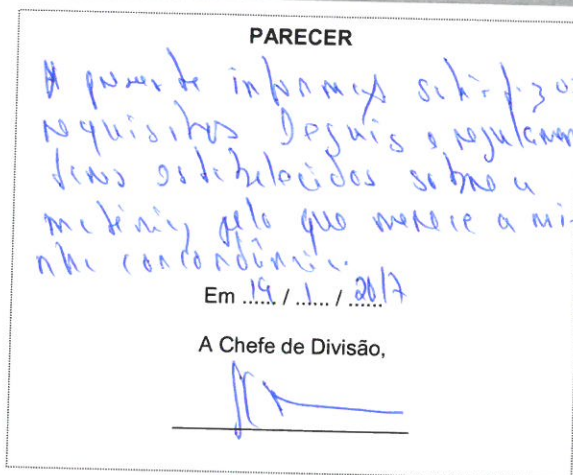 PARECER
A presente informação satisfaz os
requisitos legais e regulamen
tares estabelecidos sobre a
matéria, pelo que merece a mi-
nha concordância.
Em 19 / 1 / 2017
A Chefe de Divisão,